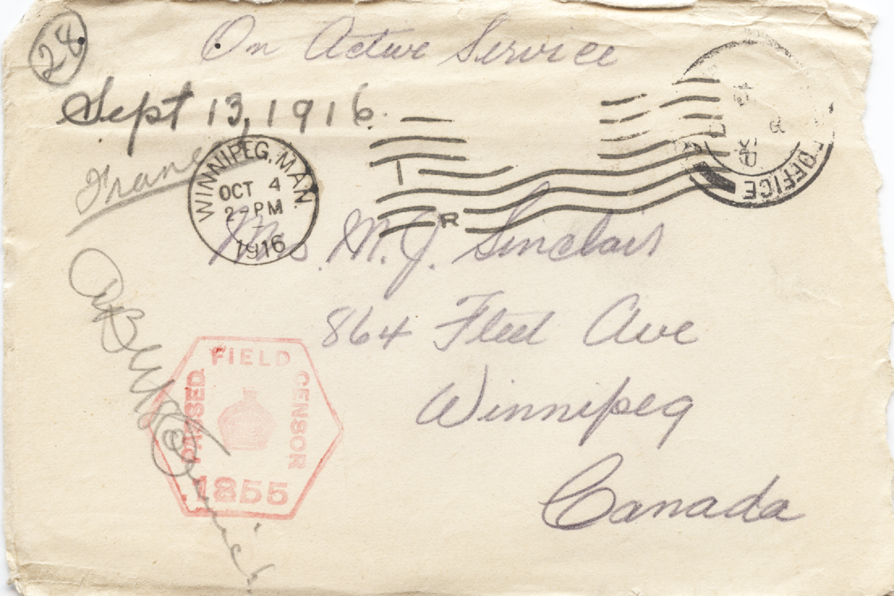 24
On Active Service
Sept 13, 1916
France
WINNIPEG, MAN.
OCT 4
2-PM
1916
I
R
OFFICE
Mrs. M. J. Sinclair
864 Fleet Ave
Winnipeg
Canada
PASSED FIELD CENSOR
1855